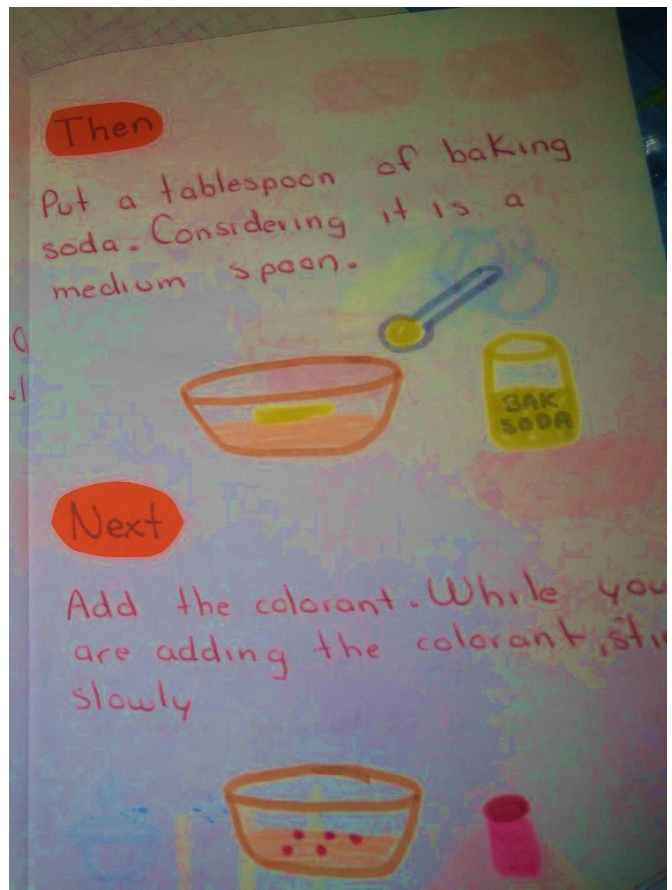 Then
Put a tablespoon of baking
soda. Considering it is a
medium spoon.
BAK
SODA
Next
Add the colorant. While you
are adding the colorant, sti
slowly